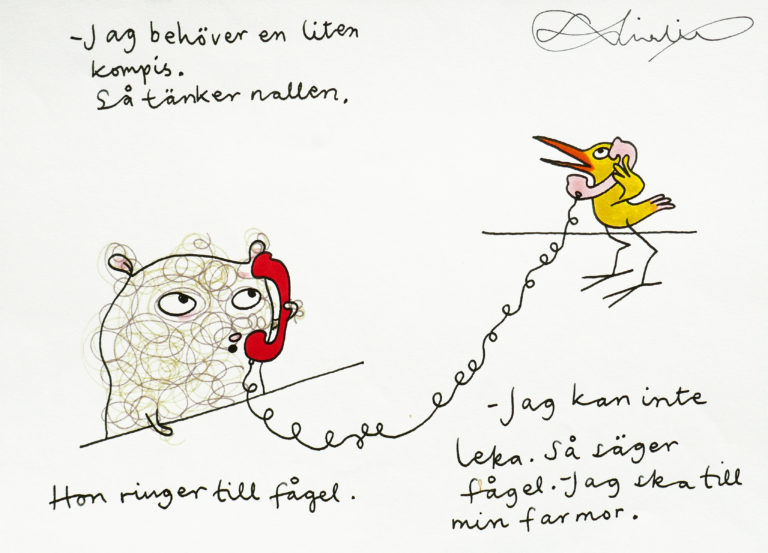 -Jag behöver en liten
kompis.
Så tänker nallen.
Hon ringer till fågel.
-Jag kan inte
leka. Så säger
fågel.-Jag ska till
min farmor.